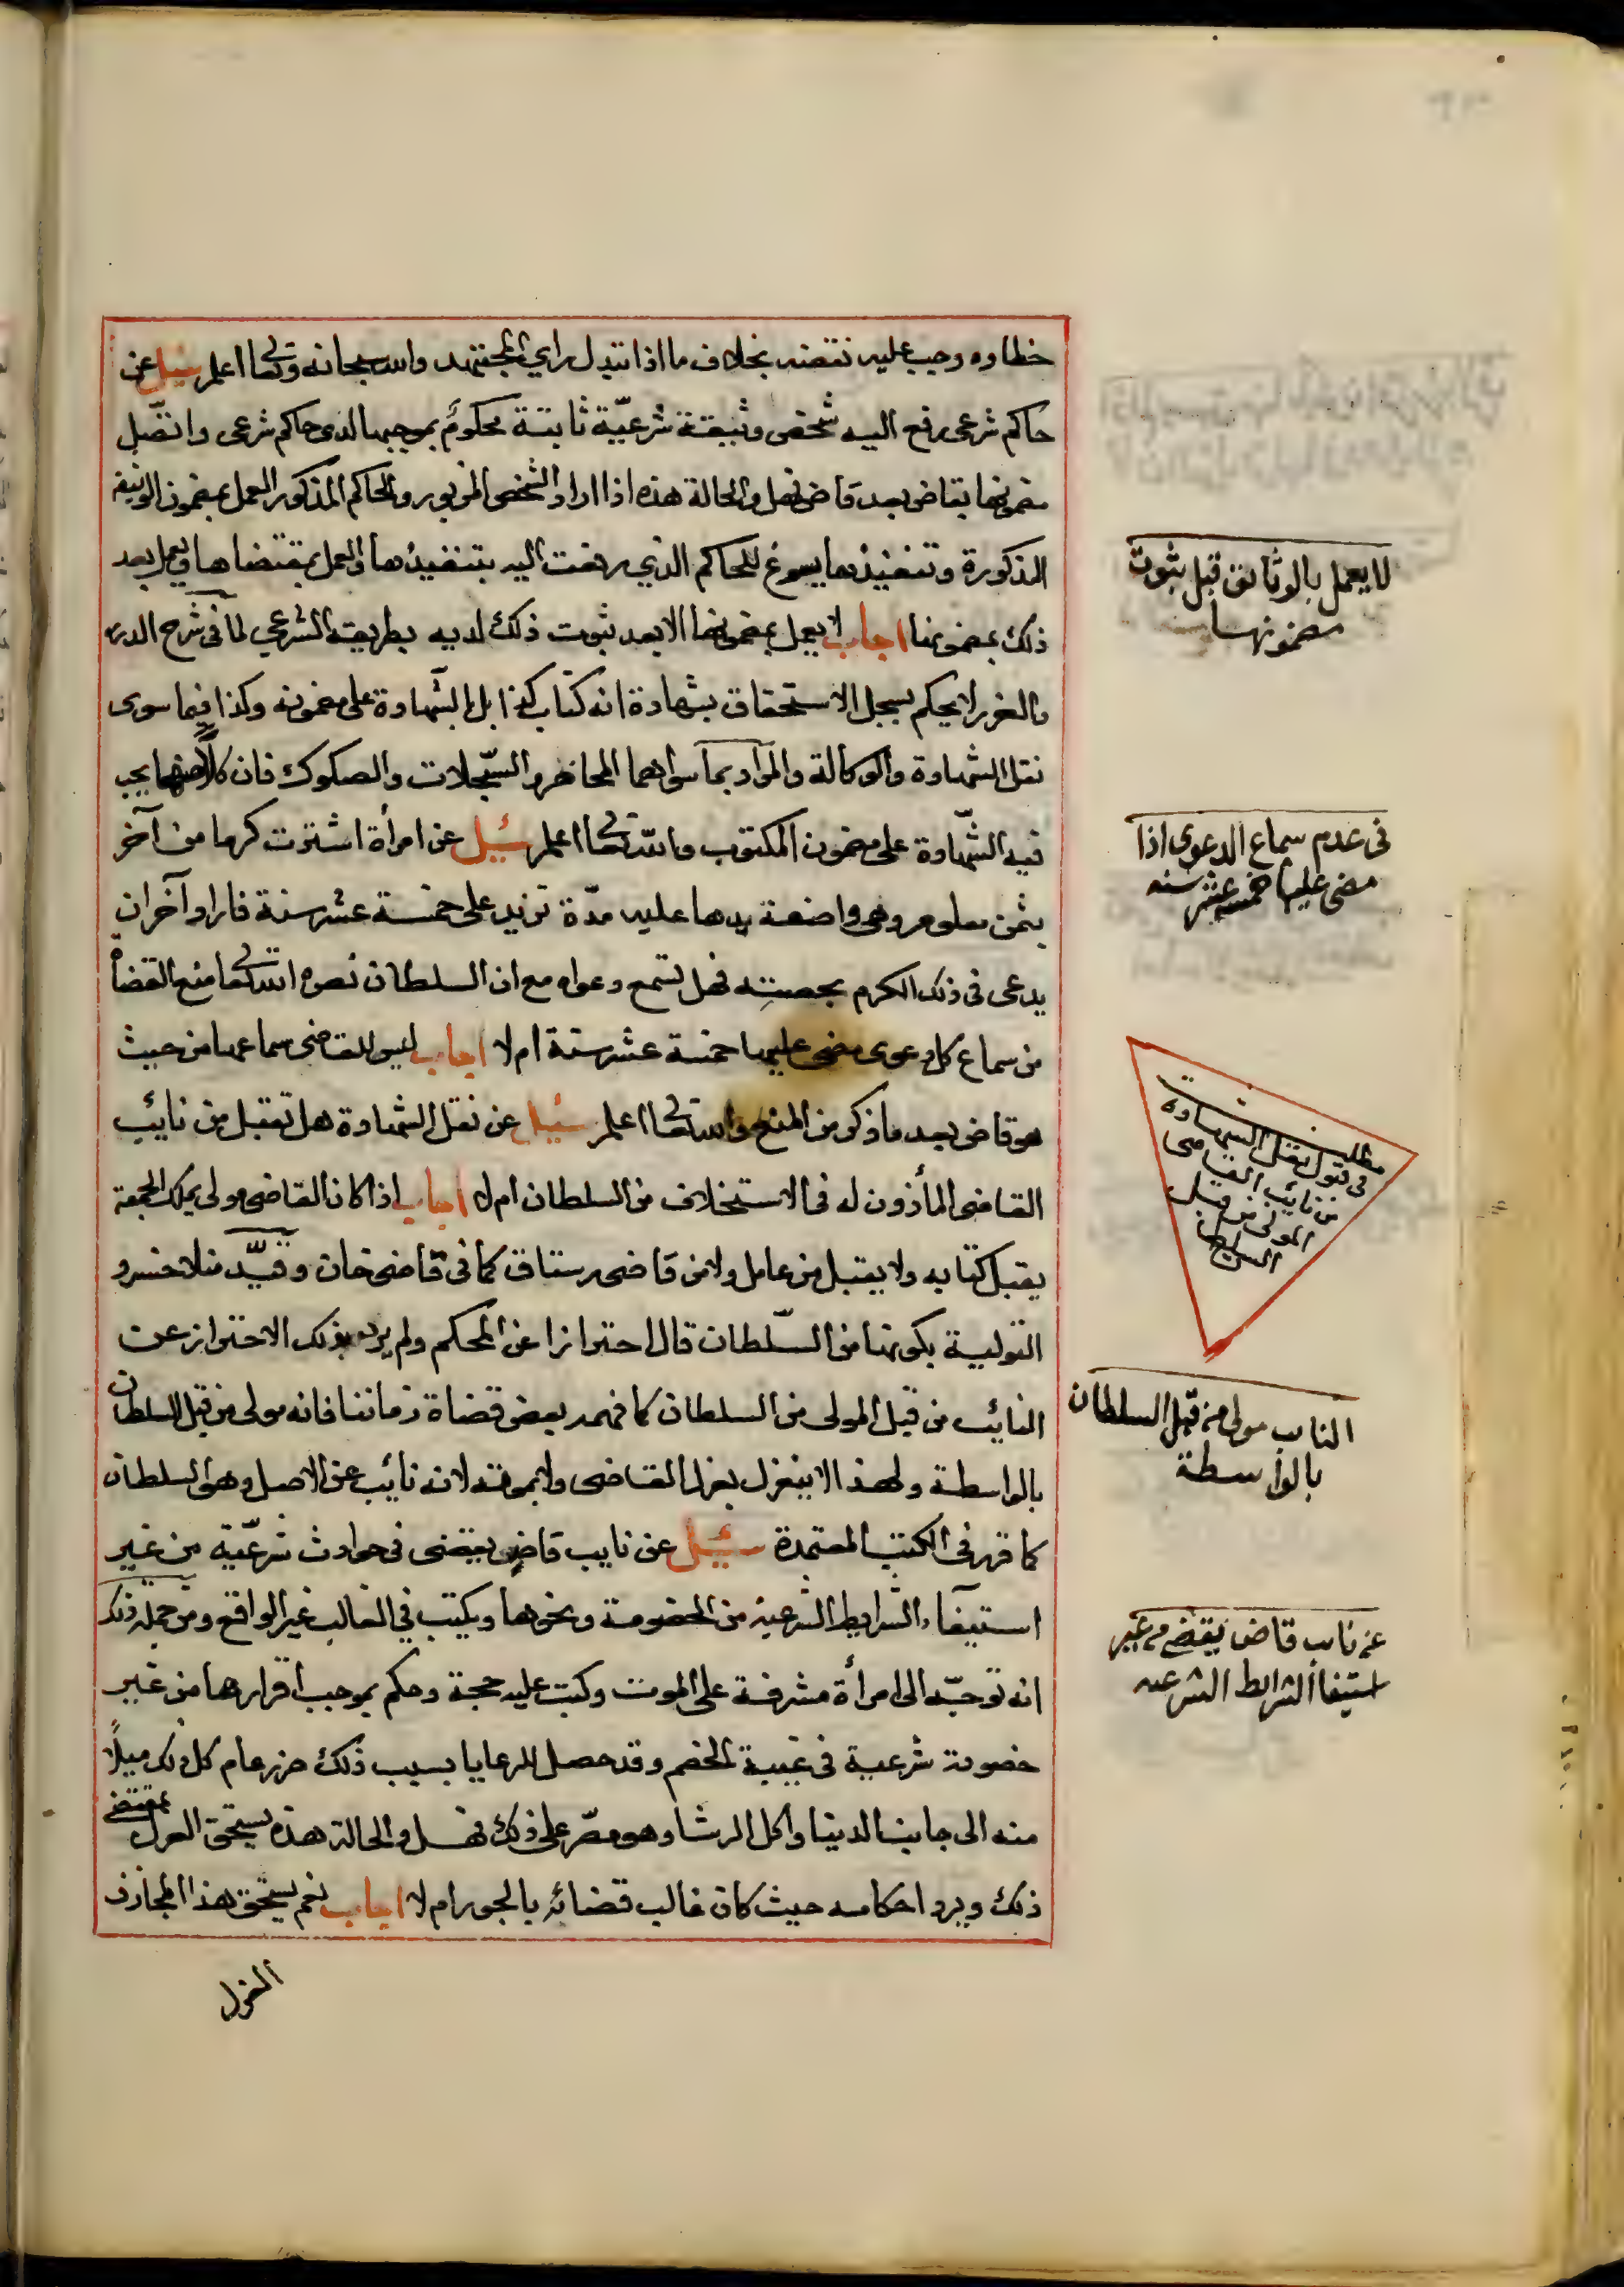 خطاوه وجب عليه نقضه بخلاف ما اذا تبدل راي المجتهد والله سبحانه وتعالى اعلم سئيل عن
حاكم شرعى رفع اليه شخص وثيقة شرعيّة ثابتة محكومٌ بموجبها لدى حاكم شرعى واتصّل
مضمونها بقاض بعد قاض فهل والحالة هذه اذا اراد الشخص المزبور والحاكم المذكور العمل بمضمون الوثيقة
المذكورة وتنفيذها يسوغ للحاكم الذي رفعت اليه بتنفيذها والعمل بمقتضاها ويعمل بعد
ذلك بمضمونها اجاب لا يعمل بمضمونها الا بعد ثبوت ذلك لديه بطريقه الشرعي لما فى شرح الدرر
والغرر لا يحكم بسجل الاستحقاق بشهادة انه كتاب كذا بل بالشهادة على مضمونه وكذا فيما سوى
نقل الشهادة والوكالة والمراد بما سواهما المحاضر والسّجلات والصكوك فان كلاًّ منها يجب
فيه الشّهادة على مضمون المكتوب والله تعالى اعلم سئيل عن امرأة اشترت كرما من آخر
بثمن معلوم وهى واضعة يدها عليه مدّة تزيد على خمسة عشر سنة فاراد آخر ان
يدعى فى ذلك الكرم بحصته فهل تسمع دعواه مع ان السلطان نصره الله تعالى منع القضاة
من سماع كل دعوى مضى عليها خمسة عشر سنة ام لا اجاب ليس للقاضى سماعها من حيث
هو قاض بعد ما ذكر من المنع والله تعالى اعلم سئيل عن نقل الشهادة هل تقبل من نائب
القاضى المأذون له فى الاستخلاف من السلطان ام لا اجاب اذا كان القاضى مولى يملك الجمعة
يقبل كتابه ولا يقبل من عامل ولا من قاضى رستاق كما فى قاضى خان وقيّد منلا خسرو
التولية بكونها من السّلطان قال احترازا عن المحكم ولم يرد بذلك الاحتراز عن
النائب من قبل المولى من السلطان كما فهمه بعض قضاة زماننا فانه مولى من قبل السلطان
بالواسطة ولهذا لا ينعزل بعزل القاضى ولا بموته لانه نائب عن الاصل وهو السلطان
كما قرر فى الكتب المعتمدة سئيل عن نايب قاض يقضى فى حوادث شرعيّة من غير
استيفآء الشرايط الشرعية من الخصومة ونحوها ويكتب في الغالب غير الواقع ومن جملة ذلك
انه توجّه الى امرأة مشرفة على الموت وكتب عليه حجة وحكم بموجب اقرارها من غير
خصومة شرعية فى غيبة الخصم وقد حصل للرعايا بسبب ذلك ضرر عام كل ذلك ميلاً
منه الى جانب الدنيا واكل الرشا وهو مصّر على ذلك فهل والحالة هذه يستحق العزل بمقتضى
ذلك ويرد احكامه حيث كان غالب قضائه بالجور ام لا اجاب نعم يستحق هذا المجازف
العزل
لا يعمل بالوثائق قبل ثبوت
مضمونها
فى عدم سماع الدعوى اذا
مضى عليها خمسة عشر سنه
مطلب
فى قبول نقل الشهادة
من نائب القاضى
المولى من قبل
السلطان
النايب مولى من قبل السلطان
بالواسطة
عن نايب قاض يقضى من غير
استيفا الشرائط الشرعيه